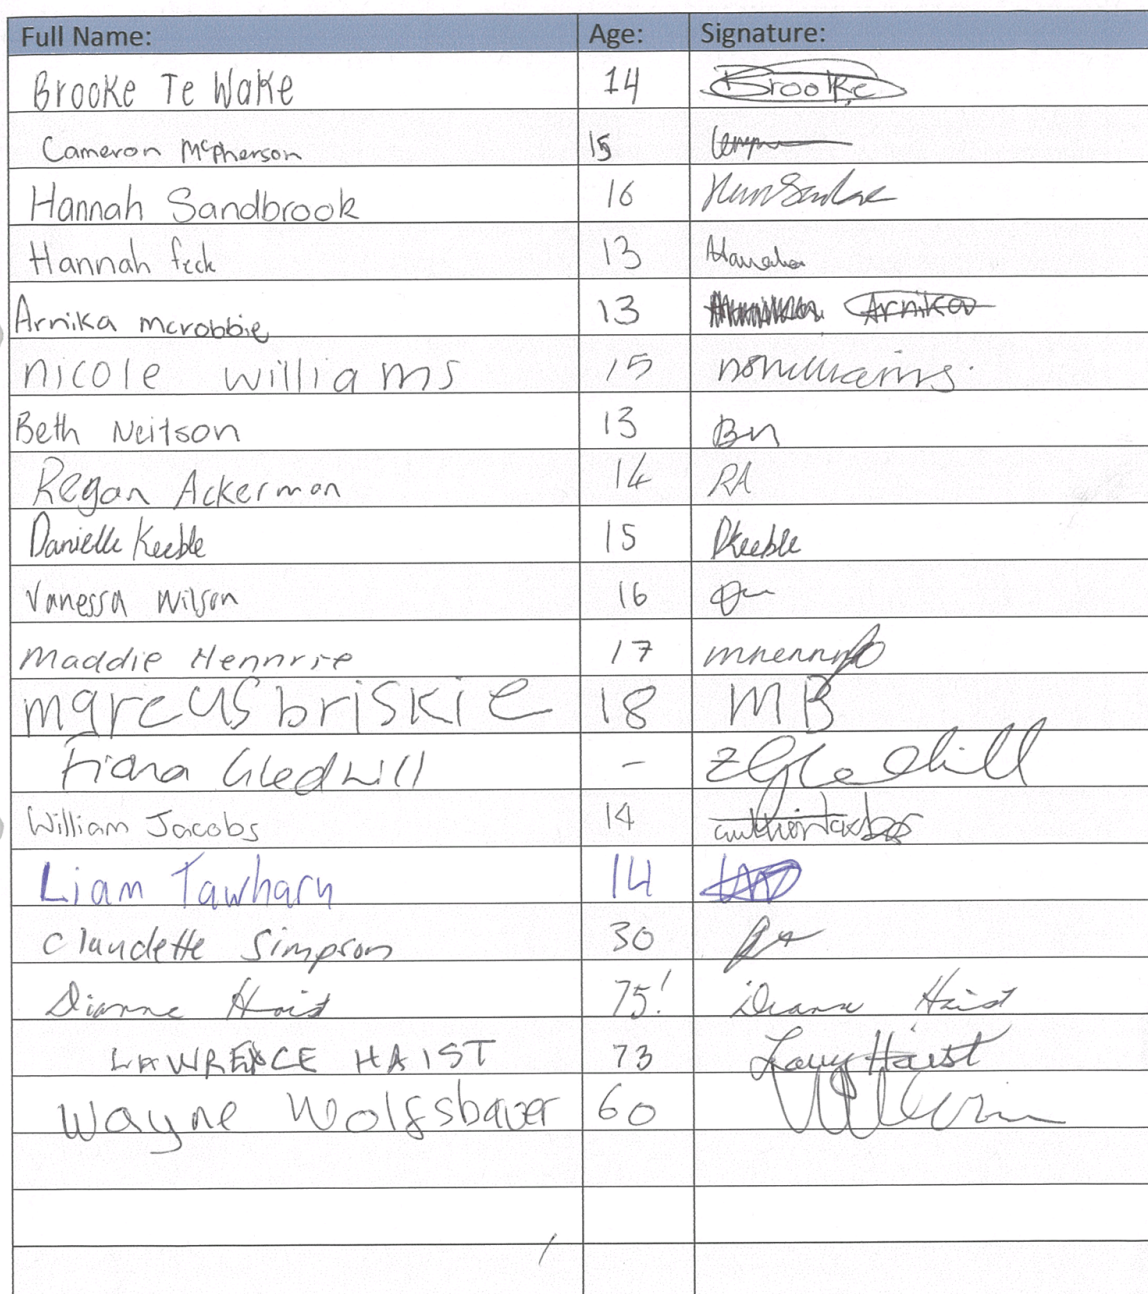 Full Name: Age: Signature:
Brooke Te Wake 14 Brooke
Cameron McPherson 15
Hannah Sandbrook 16
Hannah feck 13
Arnika mcrobbie 13 Arnika
nicole williams 15
Beth Neitson 13 Bn
Regan Ackerman 14 RA
Danielle Keeble 15 DKeeble
Vanessa Wilson 16
Maddie Hennrie 17
marcus briskie 18 MB
Gledhill - Gledhill
William Jacobs 14
Liam 14
Claudette Simpson 30
Dianne Haist 75! Haist
LAWRENCE HAIST 73 Haist
Wayne Wolfsbauer 60